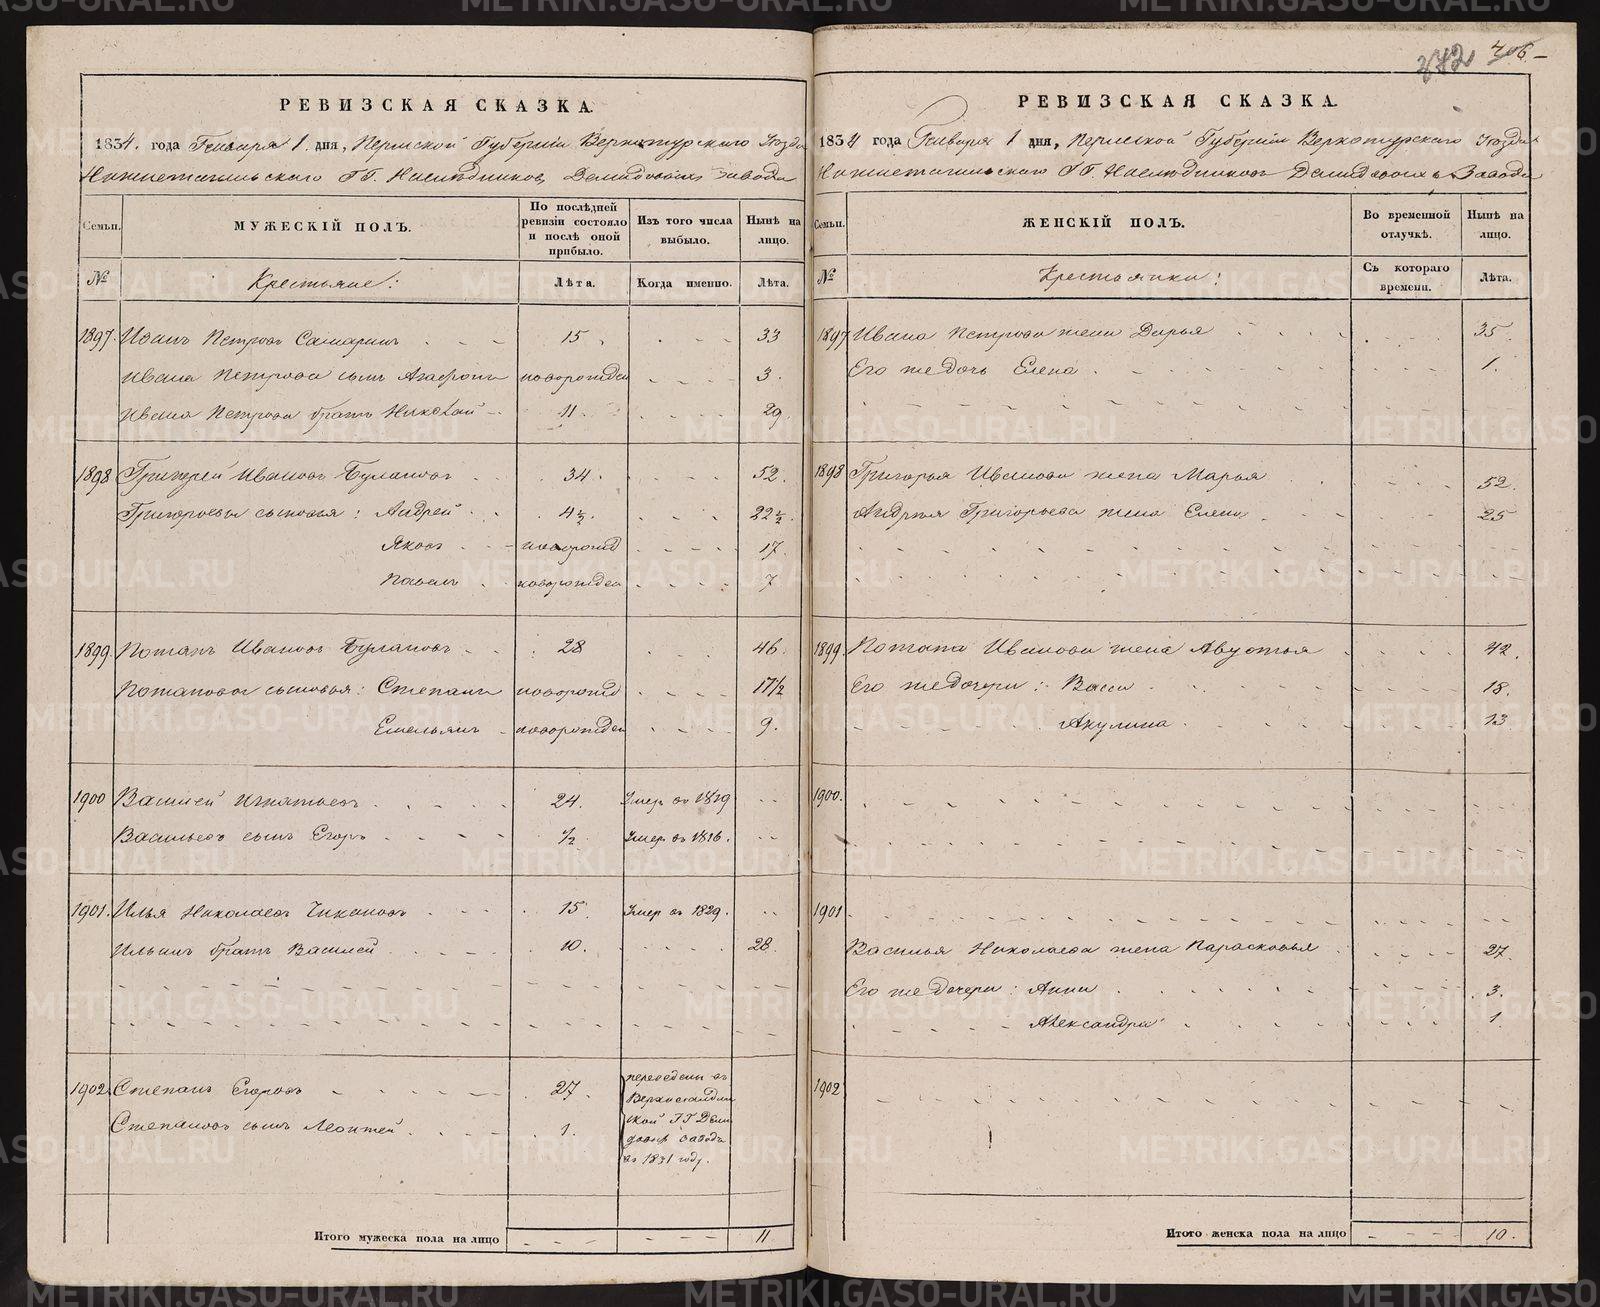 РЕВИЗСКАЯ СКАЗКА.
1834. года Генваря 1. дня, Пермской Губерніи Верхотурскаго Уезда
Нижнетагильскаго ГГ. Наслѣдниковъ Демидовыхъ завода
Семьи. МУЖЕСКІЙ ПОЛЪ. По послѣдней ревизіи состояло и послѣ оной прибыло. Изъ того числа выбыло. Нынѣ на лицо.
№ Крестьяне: Лѣта. Когда именно. Лѣта.
1897. Иванъ Петровъ Самаринъ 15 33
Ивана Петрова сынъ Агафонъ новорожден 3.
Ивана Петрова братъ Николай 11. 29.
1898 Григорей Ивановъ Булановъ 34. 52.
Григорьевы сыновья: Андрей 4½. 22½.
Яковъ новорожд 17.
Павелъ новорожден 7.
1899. Потапъ Ивановъ Булановъ 28 46.
Потаповы сыновья: Степанъ новорожд 17½
Емельянъ новорожден 9.
1900 Василей Игнатьевъ 24. Умеръ въ 1819
Васильевъ сынъ Егоръ ½ Умеръ въ 1816.
1901. Илья Николаевъ Чикановъ 15. Умеръ въ 1829.
Ильинъ братъ Василей 10. 28.
1902 Степанъ Егоровъ 27. переведены въ
Степановъ сынъ Леонтей 1. ской ГГ Деми
довыхъ заводъ
въ 1831 году.
Итого мужеска пола на лицо 11
406
372
РЕВИЗСКАЯ СКАЗКА.
1834 года Генваря 1 дня, Пермской Губерніи Верхотурскаго Уезда
Нижнетагильскаго ГГ. Наслѣдниковъ Демидовыхъ Завода
Семьи. ЖЕНСКІЙ ПОЛЪ. Во временной отлучкѣ. Нынѣ на лицо.
№ Крестьянки: Съ котораго времени. Лѣта.
1897 Ивана Петрова жена Дарья 35.
Его же дочь Елена 1.
1898 Григорья Иванова жена Марья 52.
Андрея Григорьева жена Елена 25
1899. Потапа Иванова жена Авдотья 42.
Его же дочери: Васса 18.
Акулина 13
1900.
1901
Василья Николаева жена Парасковья 27.
Его же дочери: Анна 3.
Александра 1.
1902
Итого женска пола на лицо 10.
METRIKI.GASO-URAL.RU